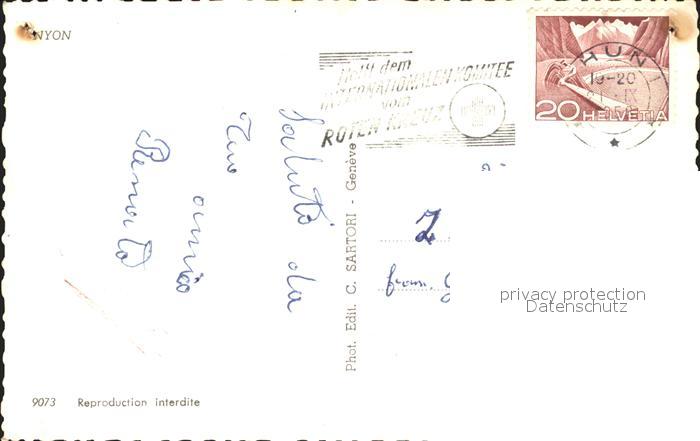 NYON
Helft dem
INTERNATIONALEN KOMITEE
vom
ROTEN KREUZ
THUN 1
19-20
IX
20 HELVETIA
Saluti da
Tuo
amico
Renato
Phot. Edit. C. SARTORI - Genève
from.
privacy protection
Datenschutz
9073 Reproduction interdite